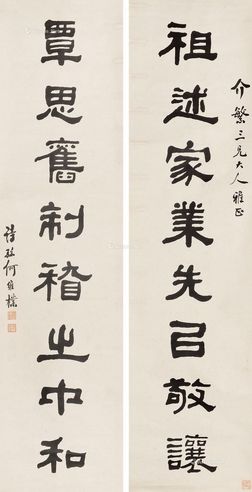 介繁三兄大人雅正
祖述家業先以敬讓
覃思舊制稽之中和
詩孫何維樸